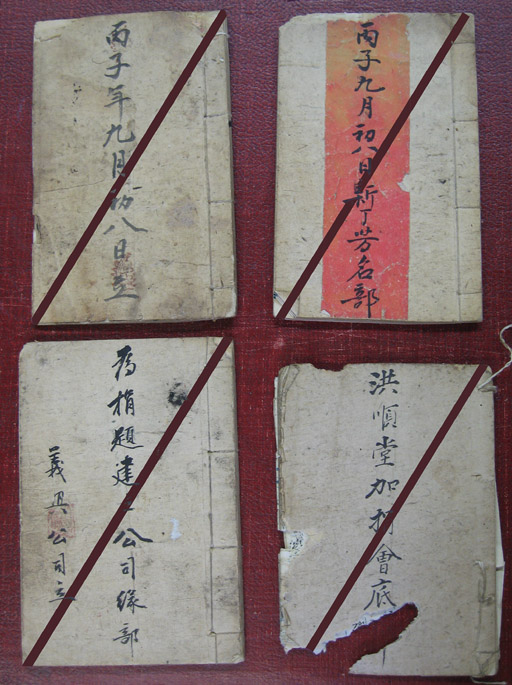 丙子年九月初八日立
丙子九月初八日新丁芳名部
為捐題建公司緣部
義興公司立
洪順堂加捐會底